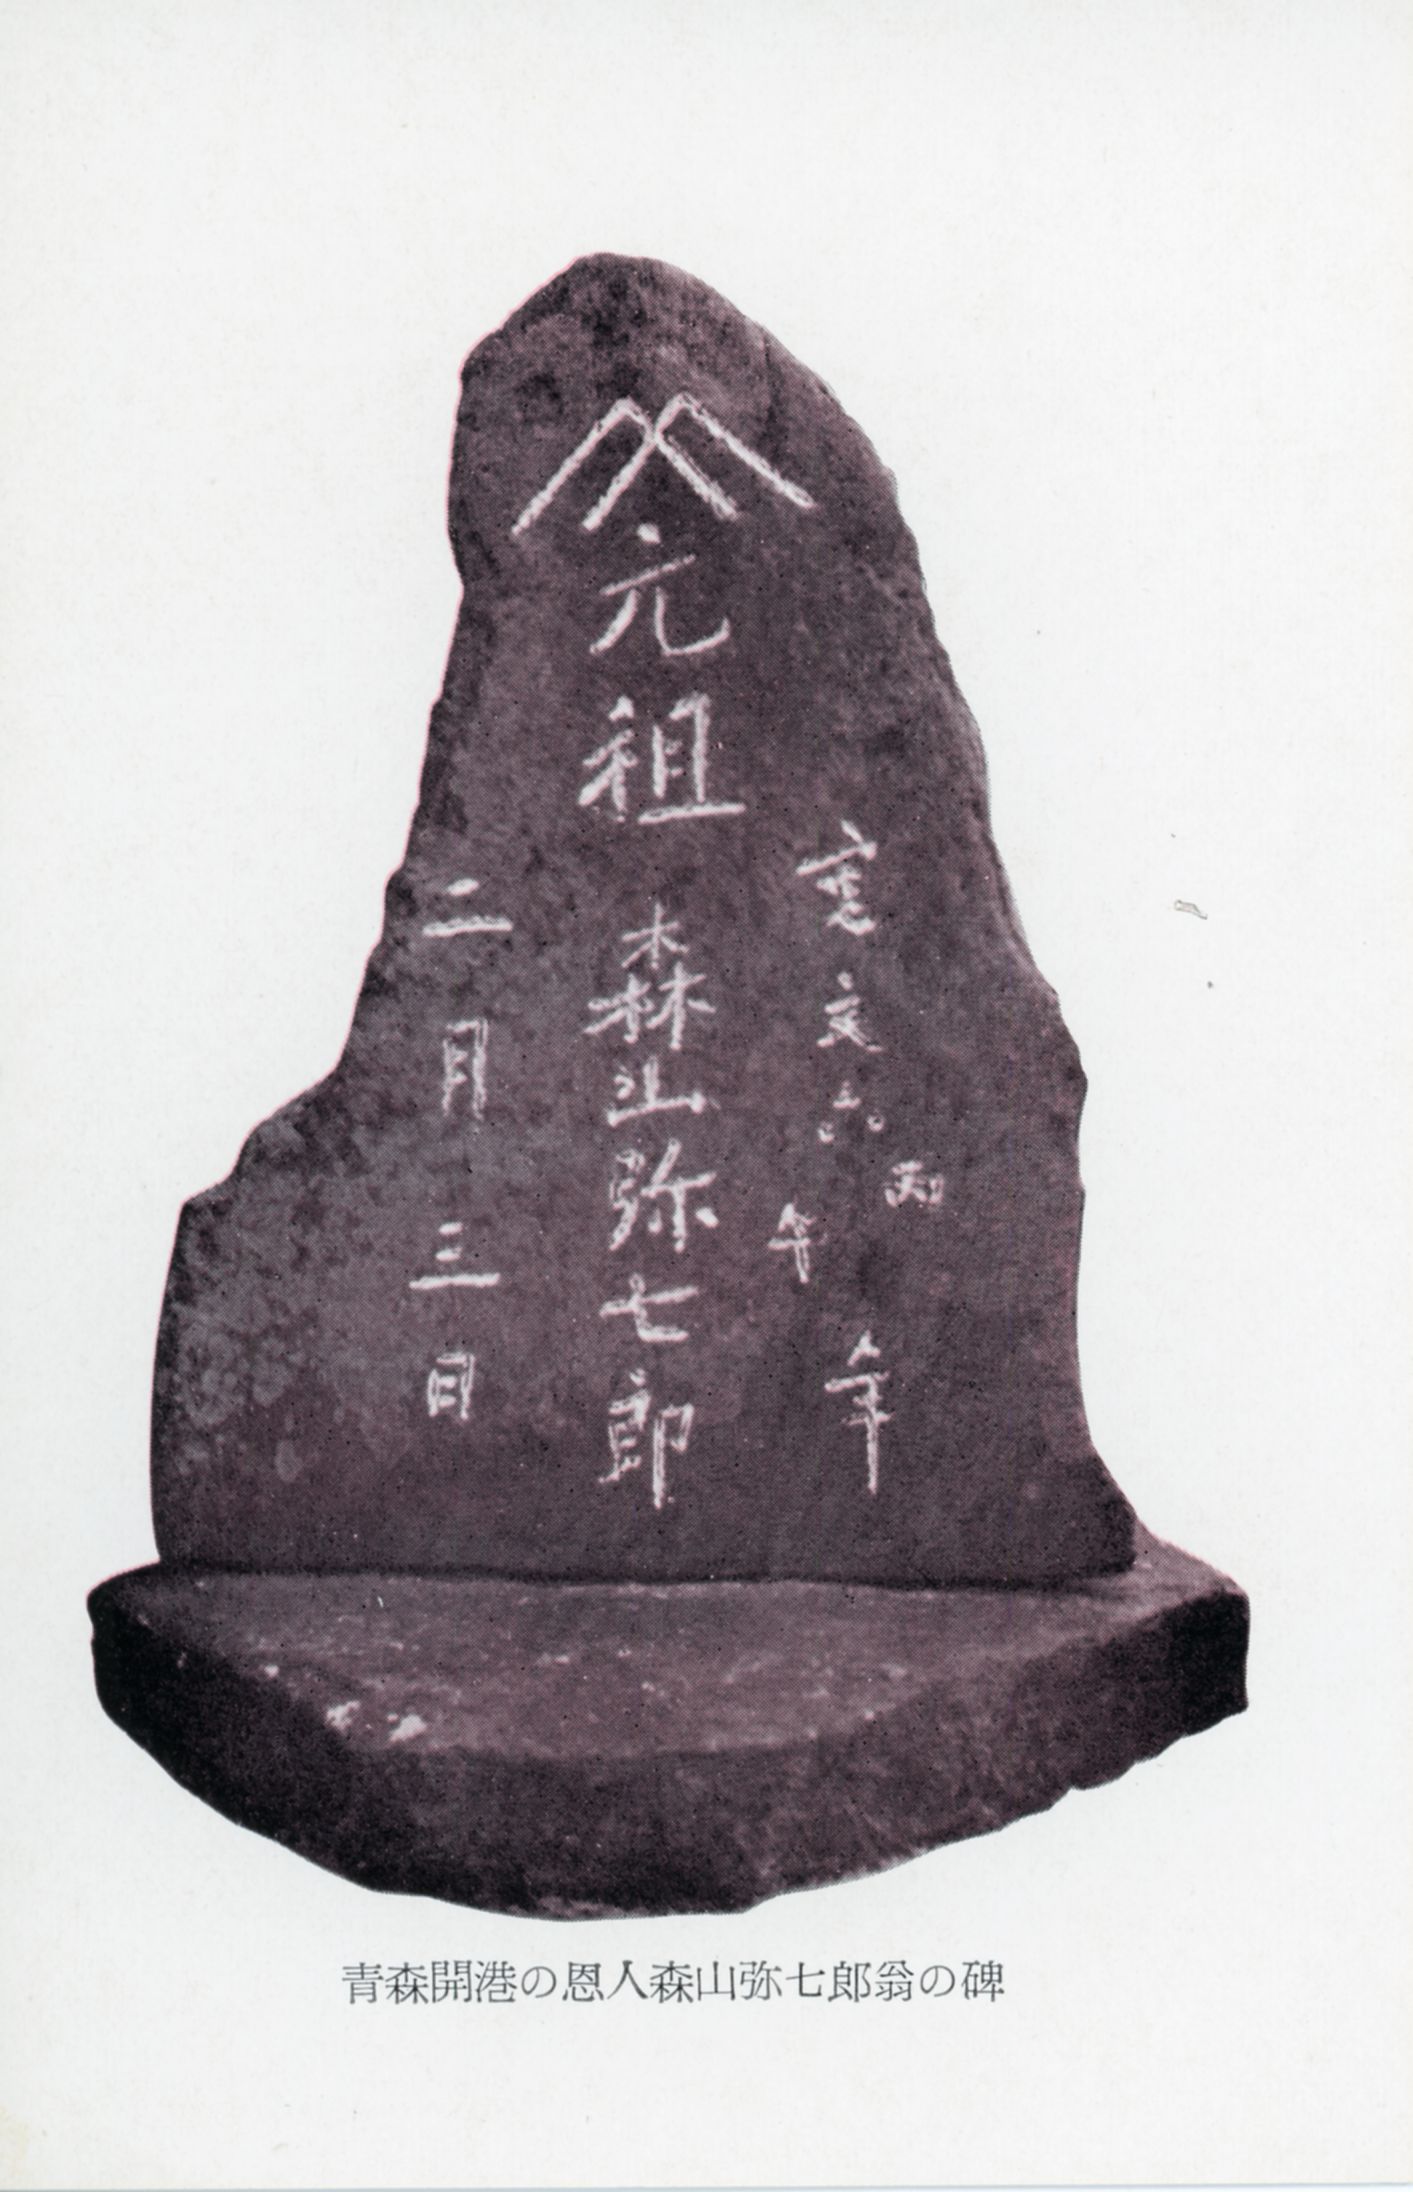 寛文六丙午年
元祖森山弥七郎
二月三日
青森開港の恩人森山弥七郎翁の碑